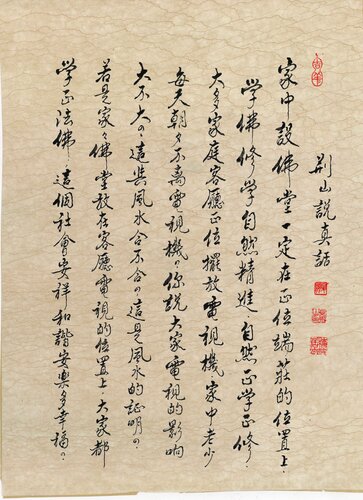 荊山說真話
家中設佛堂一定在正位端莊的位置上.
學佛修學自然精進.自然正學正修.
大多家庭客廳正位擺放電視機家中老少
每天朝夕不離電視機.你說大家電視的影响
大不大.這與風水合不合.這是風水的証明.
若是家家佛堂放在客廳電視的位置上.大家都
學正法佛.這個社會安祥和諧安樂多幸福.